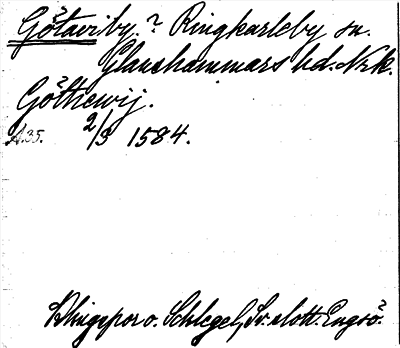 Götaviby.? Ringkarleby sn.
Glanshammars hd. Nrk.
Göthewij.
A.35. 2/3 1584.
Klingspor o. Schlegel, Sv. slott. Engsö.